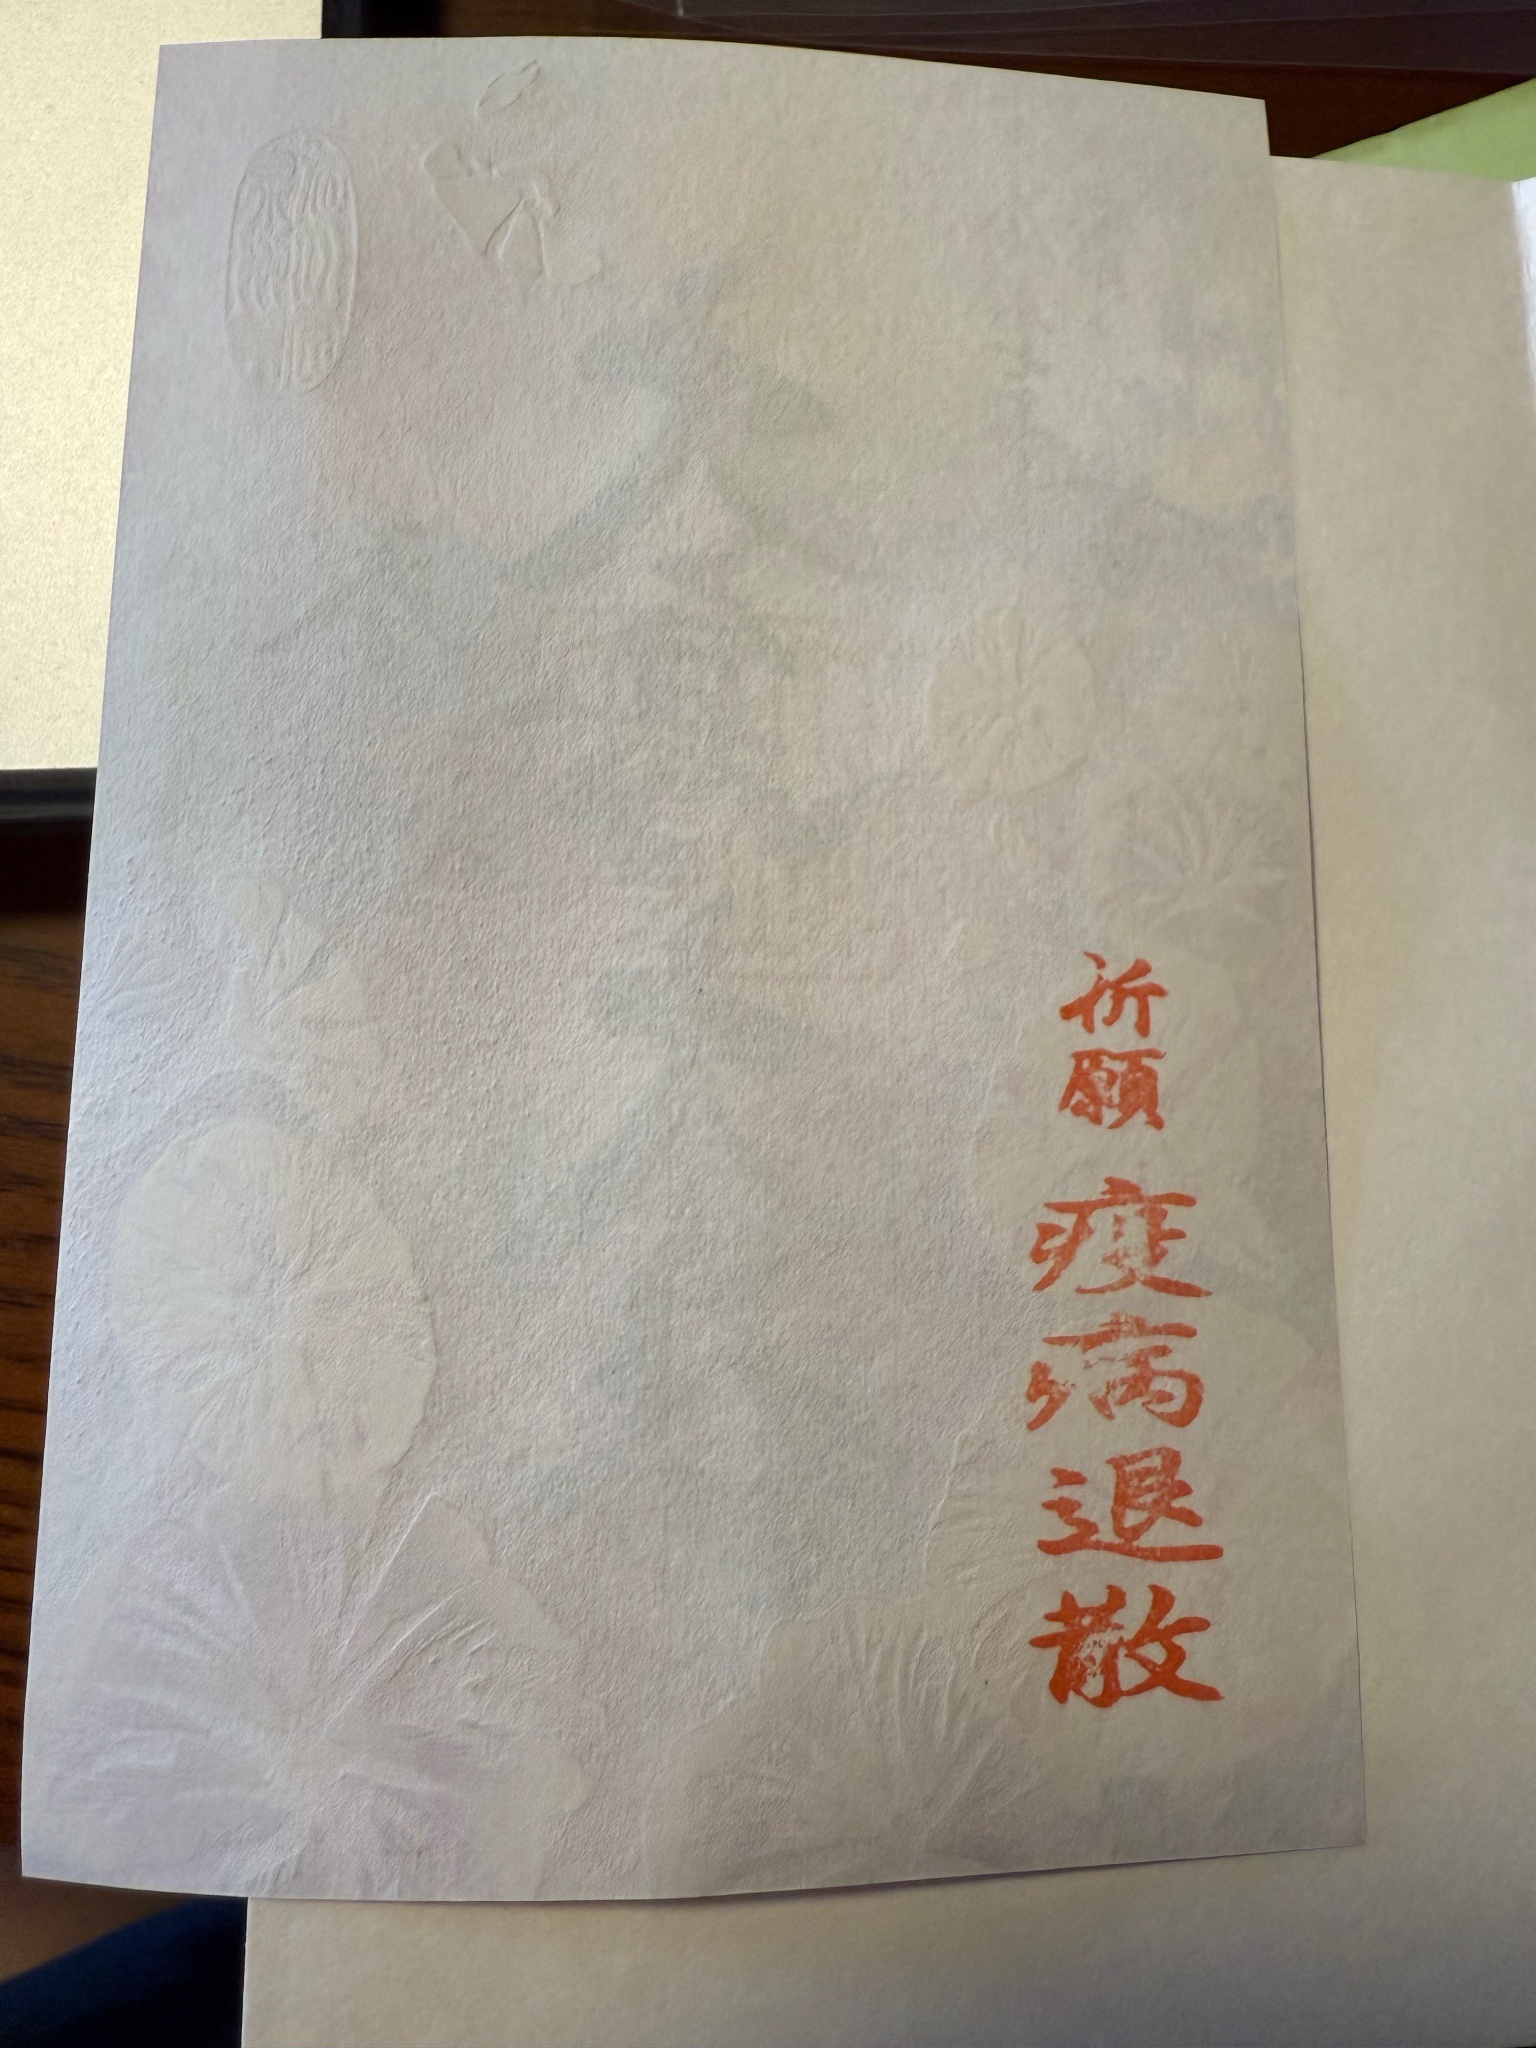 祈願 疫病退散